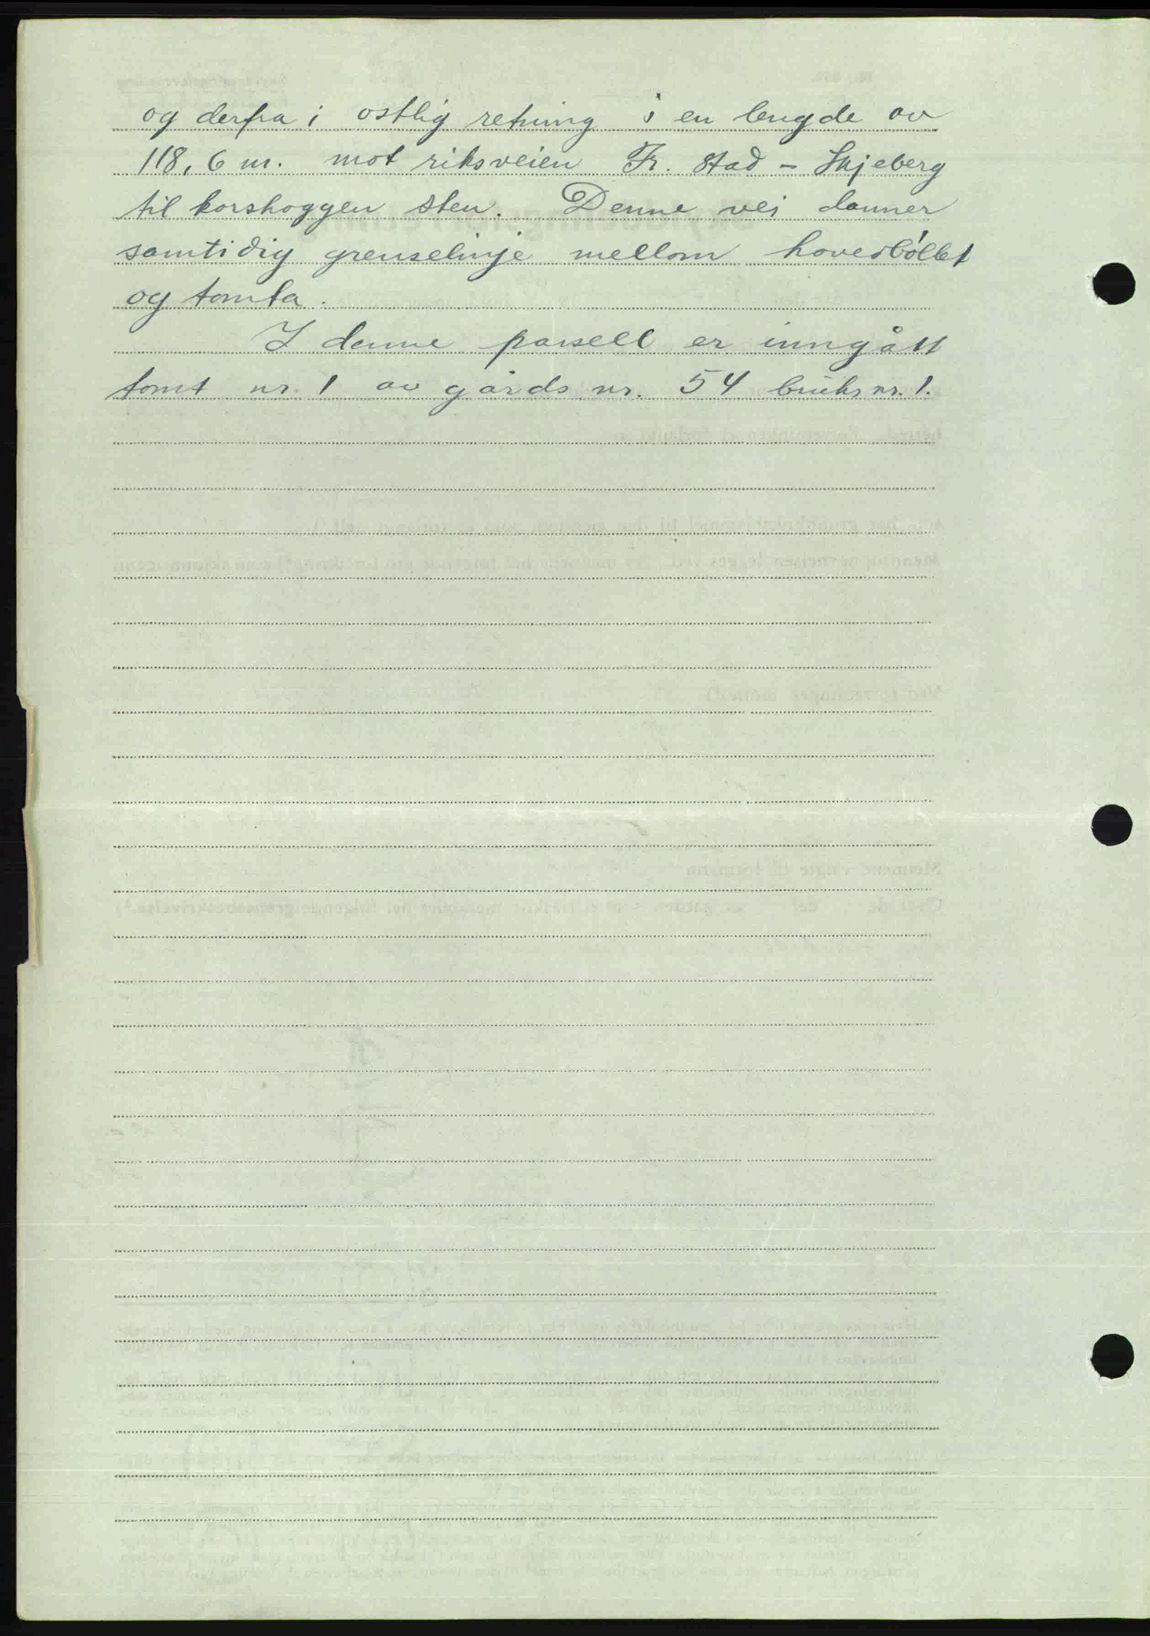 og derfra i ostlig retning i en lengde av
118,6 m. mot riksveien Fr. stad - Skjeberg
til korshoggen sten. Denne vei danner
samtidig grenselinje mellom hovedbøllet
og tomta.
I denne parsell er inngått
tomt nr. 1 av gårds nr. 54 bruks nr. 1.